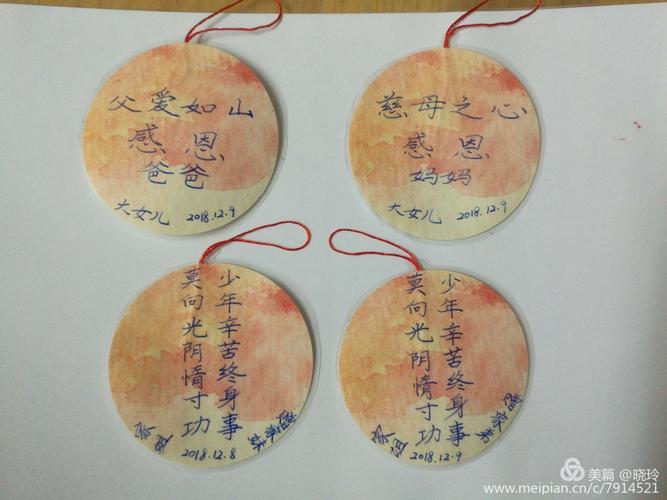 父爱如山
感恩
爸爸
大女儿 2018.12.9
慈母之心
感恩
妈妈
大女儿 2018.12.9
少年辛苦终身事
莫向光阴惰寸功
赠家妹
家姐
2018.12.8
少年辛苦终身事
莫向光阴惰寸功
赠家弟
家姐
2018.12.9
美篇 @晓玲
www.meipian.cn/c/7914521